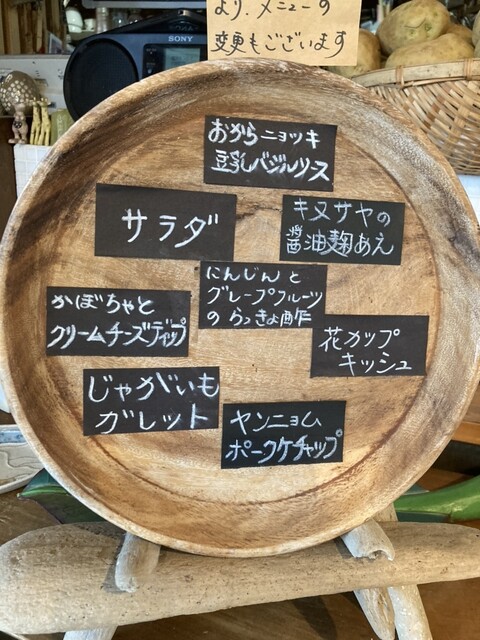 より、メニューの
変更もございます
SONY
おからニョッキ
豆乳バジルソース
サラダ
キヌサヤの
醤油麹あえ
にんじんと
グレープフルーツ
のらっきょ酢
かぼちゃと
クリームチーズディップ
花カップ
キッシュ
じゃがいも
ガレット
ヤンニョム
ポークケチャップ